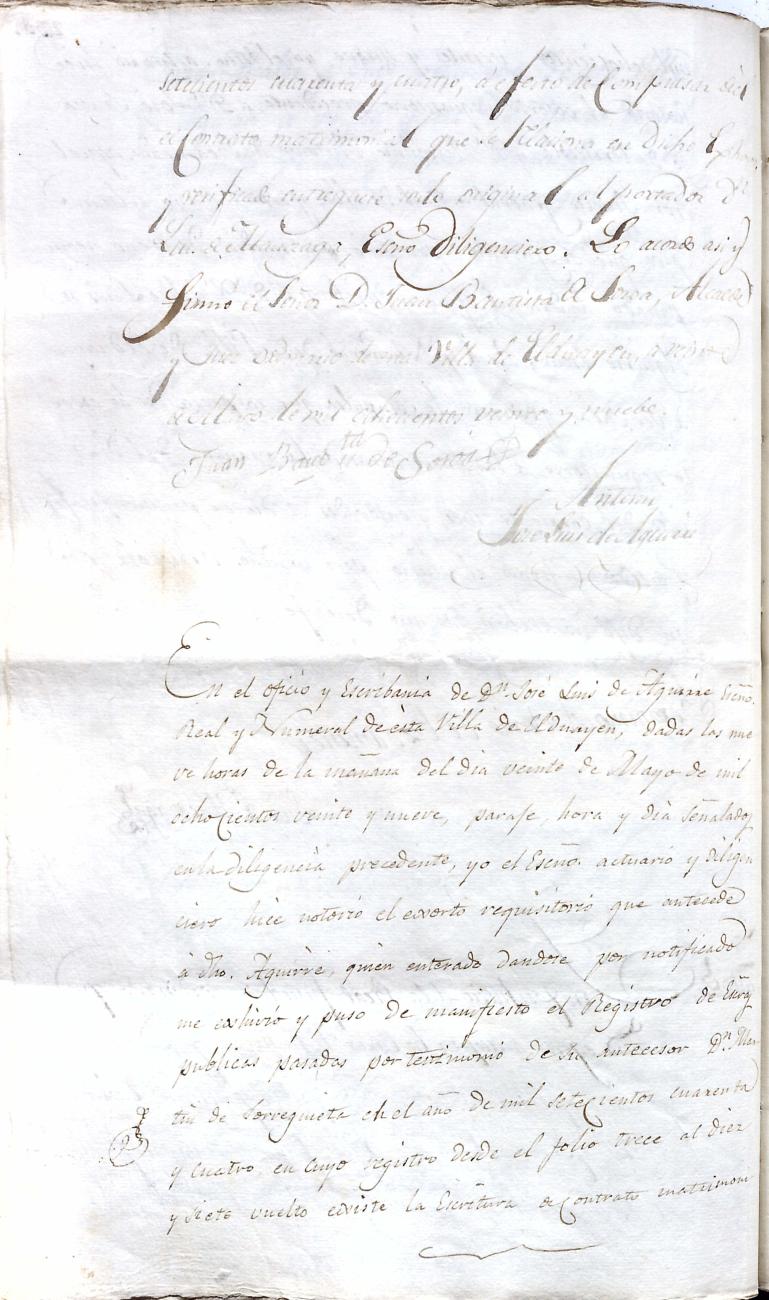 setecientos cuarenta y cuatro, a efecto de Compulsar de el
el Contrato matrimonial que se relaciona en dicho Exhorto,
y verificado entreguese todo original al portador Dn.
de Escno diligenciero. Lo acordó asi y
firmó el Señor D. Juan Bautista de Soroa, Alcalde
y Juez ordinario de esta Villa de Elduayen, a veinte
de Mayo de mil ochocientos veinte y nuebe.
Juan Bautta de Soroa
Antemi
Jose Luis de Aguirre
En el oficio y Escribania de Dn. José Luis de Aguirre Escno.
Real y Numeral de esta Villa de Elduayen, dadas las nue
ve horas de la mañana del dia veinte de Mayo de mil
ochocientos veinte y nueve, paraje, hora y dia señalados
en la diligencia precedente, yo el Escno. actuario y diligen
ciero hice notorio el exorto requisitorio que antecede
á dho. Aguirre, quien enterado dandose por notificado
me exhivió y puso de manifiesto el Registro de Escras
publicas pasadas por testimonio de su antecesor Dn. Mar
tin de Sorreguieta en el año de mil setecientos cuarenta
y cuatro, en cuyo registro desde el folio trece al diez
y siete vuelto existe la Escritura de Contrato matrimoni